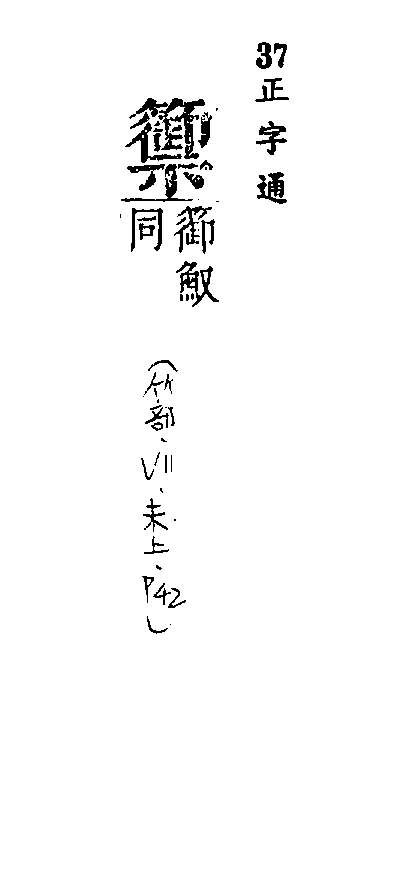 37正字通
禦
同
(竹部、VII、未上、P42)